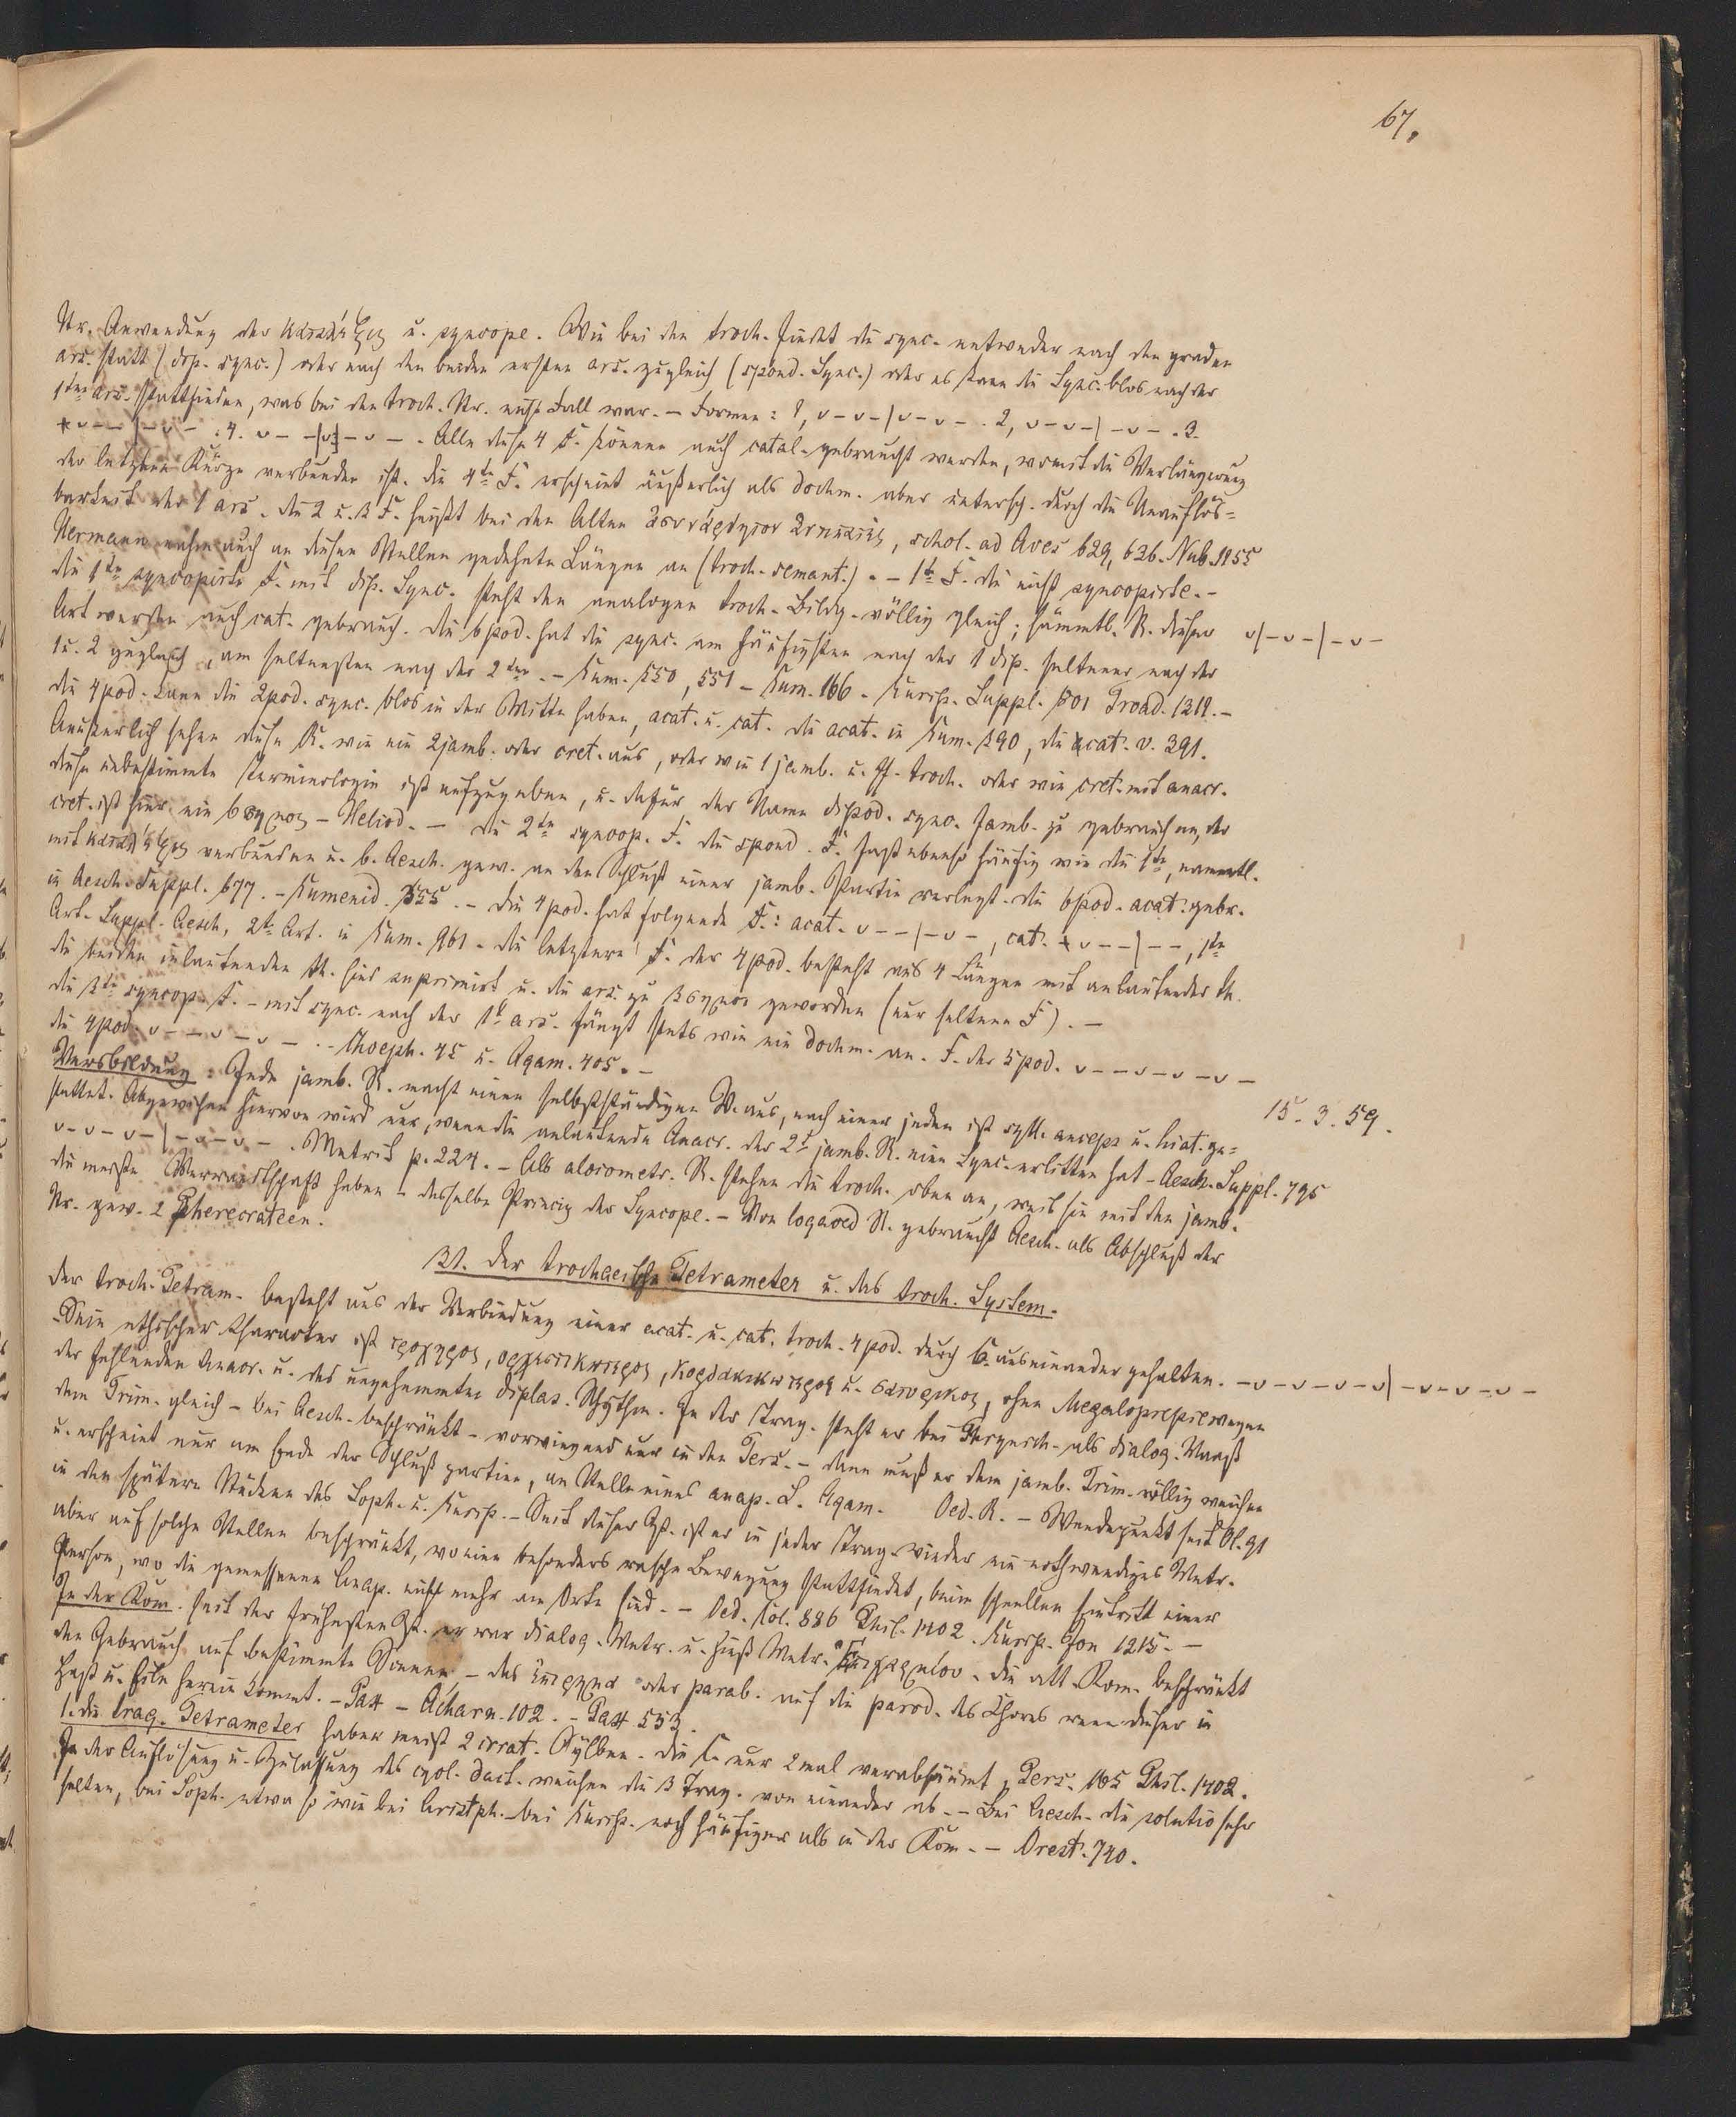 67.
Str. Anwendung der κατάληξις u. syncope. Wie bei den troch. findet die sync. entweder nach den graden
ars. statt (dip. sync.) oder nach den beiden ersten ars. zugleich (spond. Sync.) oder es kann die Sync. blos nach der
1ten ars. stattfinden, was bei den troch. Str. nicht Fall war. – Formen: 1, ᴗ – ᴗ – | ᴗ – ᴗ – . 2, ᴗ – ᴗ – | – ᴗ – . 3.
ᴗ – – | – ᴗ – . 4. ᴗ – – | ᴗ – ᴗ – . Alle diese 4 F. können auch catal. gebraucht werden, womit die Verlängerung
der letzten Kürze verbunden ist. die 4te F. erscheint äußerlich als dochm. aber untersch. durch die Unauflös-
barkeit der 1 ars. die 2 u. 3 F. heißt bei den Alten , schol. ad Aves 629, 636. Nub. 1155
Hermann nahm auch an diesen Stellen gedehnte Längen an (troch. semant.). – 1te F. die nicht syncopirte. –
die 1te syncopirte F. mit dip. Sync. steht den analogen troch. Bildg. völlig gleich; sämmtl. R. dieser ᴗ | – ᴗ – | – ᴗ –
Art werden auch cat. gebrauch. die 6pod. hat die sync. am häufigsten nach der 1 dip. seltener nach der
1 u. 2 zugleich, am seltensten nach der 2ten. – Eum. 550, 551 – Eum. 166 – Eurip. Suppl. 801 Troad. 1312. –
die 4pod. kann die 2pod. sync. blos in der Mitte haben, acat. u. cat. die acat. in Eum. 390, die cat. v. 391.
Aeußerlich sehen diese R. wie ein 2jamb. oder cret. aus, oder wie 1 jamb. u. troch. oder wie cret. mit anacr.
diese unbestimmte Terminologie ist aufzugeben, u. dafür der Name dipod. sync. Jamb. zu gebrauchen, der
cret. ist hier ein 6σημος – Heliod. – die 2te syncop. F. die spond. F. fast ebenso häufig wie die 1te, namentl.
mit κατάληξις verbunden u. b. Aesch. gew. an den Schluß einer jamb. Partie verlegt. die 6pod. acat. gebr.
in Aesch. Suppl. 677. – Eumenid. 355. – die 4pod. hat folgende F.: acat. ᴗ – – | – ᴗ – , cat. ᴗ – – | – – , 1te
Art. Suppl. Aesch, 2te Art. in Eum. 961 – die letztere F. der 4pod. besteht aus 4 Längen mit anlautender th.
die beiden inlautenden th. sind supprimirt u. die ars. zu 3σημοι geworden (nur seltene F). –
die 3te syncop. F. – mit sync. nach der 1t ars. fängt stets wie ein dochm. an. F. der 5pod. ᴗ – – ᴗ – ᴗ – ᴗ –
die 4pod. ᴗ – – ᴗ – ᴗ – . – Choeph. 45 u. Agam. 405. –
Versbildung: Jede jamb. R. macht einen selbstständigen V. aus, nach einer jeden ist syll. anceps u. hiat. ge- 15. 3. 59.
stattet. Abgewichen hiervon wird nur, wenn die anlautende Anacr. der 2t jamb. R. eine Sync. erlitten hat – Aesch. Suppl. 795
ᴗ – ᴗ – ᴗ – | – ᴗ – ᴗ – . Metrik p. 224. – Als aloiometr. R. stehen die troch. oben an, weil sie mit den jamb.
die meiste Verwandtschaft haben – dasselbe Princip der Syncope. – Von logaoed R. gebraucht Aesch. als Abschluß der
Str. gew. 2 Pherecrateen.
31. der trochaeische Tetrameter u. das troch. System.
der troch. Tetram. besteht aus der Verbindung einer acat. u. cat. troch. 4pod. durch C. auseinander gehalten. – ᴗ – ᴗ – ᴗ – ᴗ | – ᴗ – ᴗ – ᴗ –
Sein ethischer Charakter ist τροχερος, ορχηστικωτερος, κορδακικωτερος u. σατυρικος, ohne Megaloprepie wegen
der fehlenden Anacr. u. des ungehemmten diplas. Rhythm. In der Trag. steht er bei Phrynich. als dialog. Maaß
dem Trim. gleich – bei Aesch. beschränkt – vorwiegend nur in den Pers. – dann muß er dem jamb. Trim. völlig weichen
u. erscheint nur am Ende der Schlußpartien, an Stelle eines anap. S. Agam. Oed. R. – Wendepunkt seit Ol. 91
in den spätern Stücken des Soph. u. Eurip. – Seit dieser Zt. ist er in jeder Trag. wieder ein nothwendiges Metr.
aber auf solche Stellen beschränkt, wo eine besonders rasche Bewegung stattfindet, beim schnellen Eintritt einer
Person, wo die gemessenen Anap. nicht mehr am Orte sind. – Oed. Col. 886 Phil. 1402. Eurip. Jon 1215. –
In der Kom. seit der frühesten Zt. er war dialog. Metr. u. hieß Metr. . die att. Kom. beschränkt
den Gebrauch auf bestimmte Scenen, – das επιρρημα oder parab. auf die parod. des Chores wenn dieser in
Hast u. Eile herein kommt. – Pax – Acharn. 102. – Pax 553.
1. die trag. Tetrameter haben meist 2 irrat. Sylben. die C. nur 2mal verabsäumt, Pers. 165 Phil. 1402.
In der Auflösung u. Zulassung des cycl. dact. weichen die 3 Trag. von einander ab. – Bei Aesch. die solutio sehr
selten, bei Soph. etwa so wie bei Aristph. – bei Eurip. noch häufiger als in der Kom. – Orest. 740.